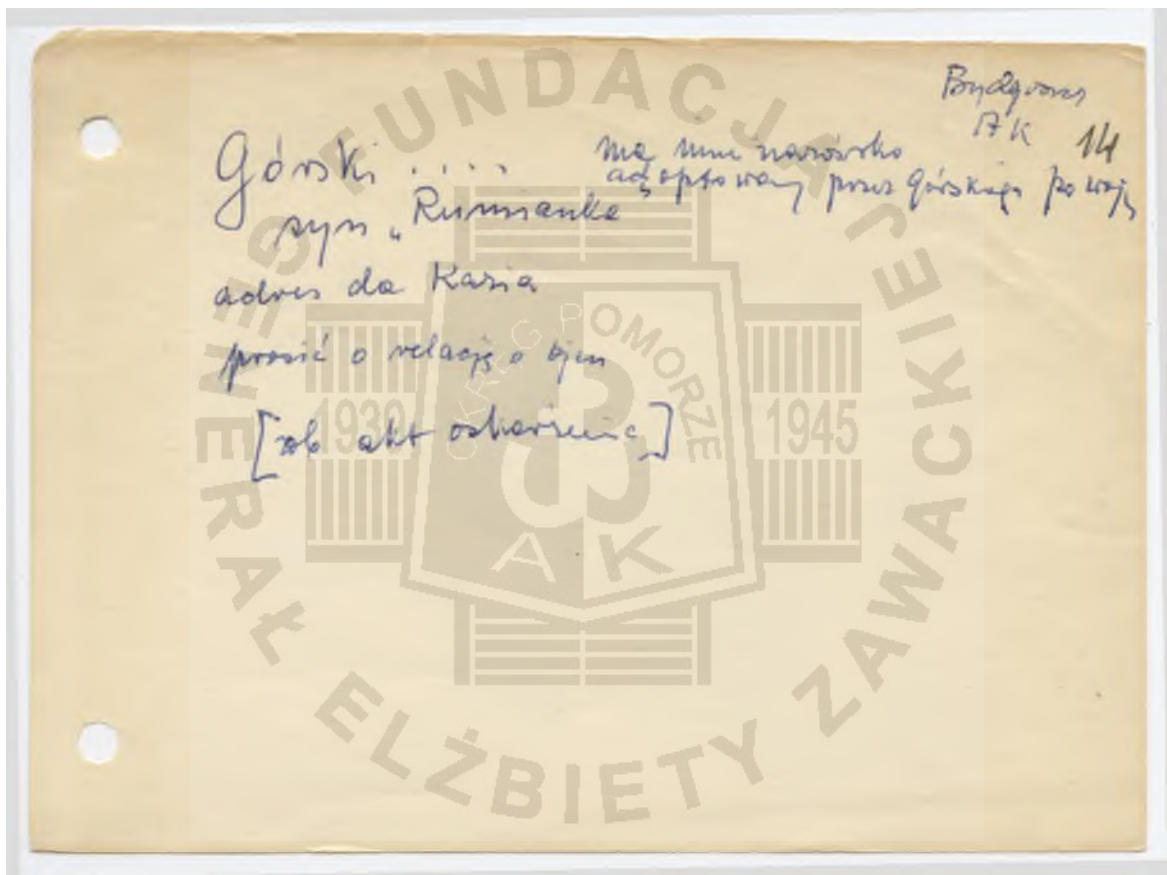 Bydgoszcz
AK 14
Górski .... ma inne nazwisko
adoptowany przez Górskiego po woj
syn „Rumianka
adres da Kazia
prosić o relację o ojcu
[zob akt oskarżenia]
FUNDACJA GENERAŁ ELŻBIETY ZAWACKIEJ
OKRĘG POMORZE
1939 1945
AK